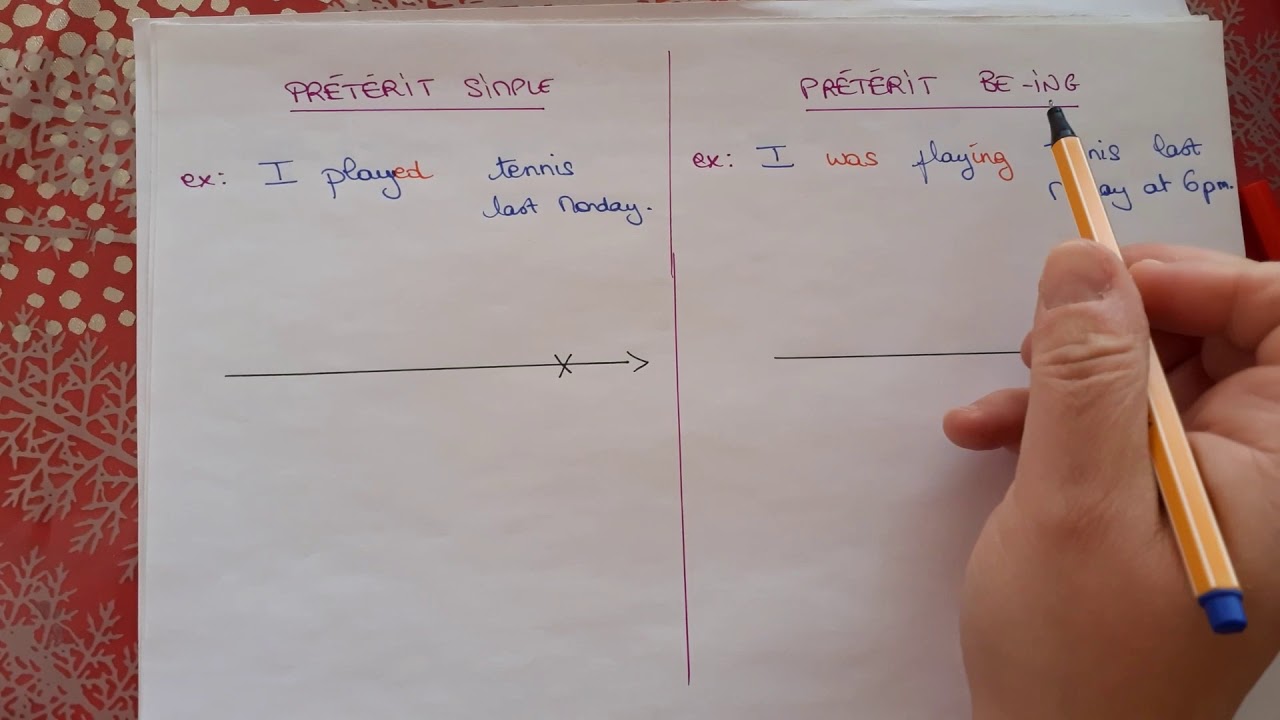 PRÉTÉRIT SIMPLE
ex: I played tennis
last Monday.
PRÉTÉRIT BE-ING
ex: I was playing last
at 6pm.